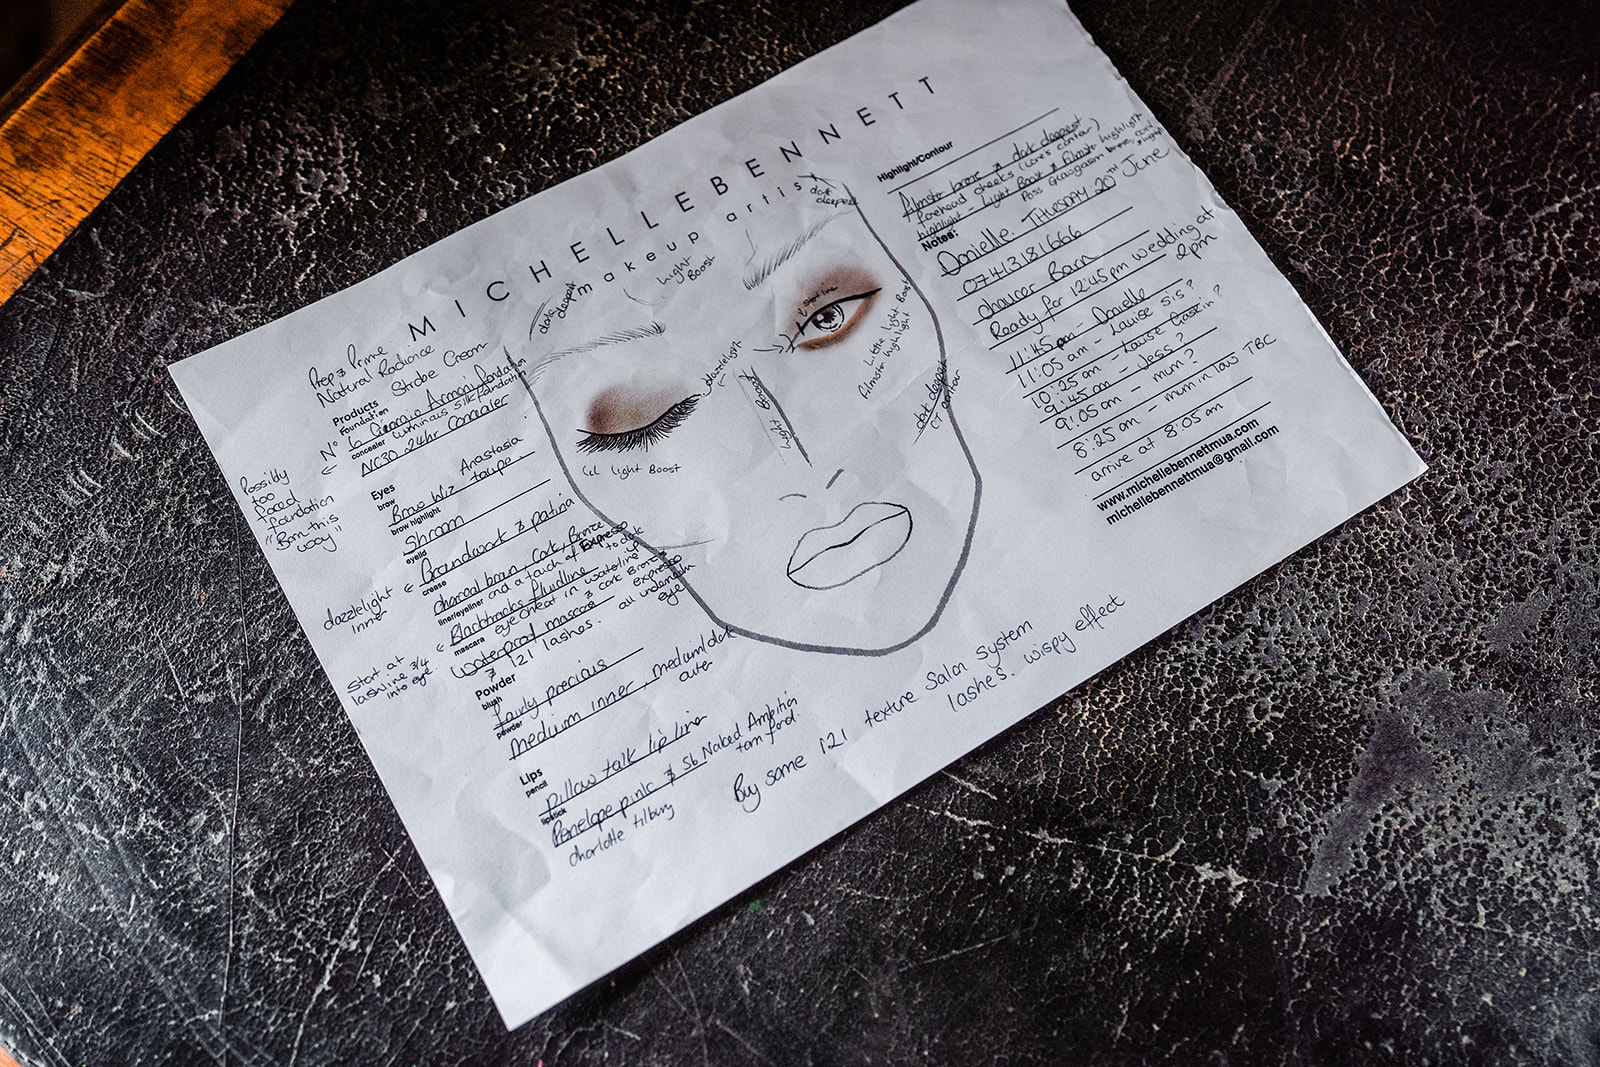 MICHELLEBENNETT
makeup artist
Prep & Prime
Natural Radiance
Strobe Cream
Products
Foundation
No 6 Giorgio Armani foundation
luminous silk foundation
concealer
NC30 24hr Concealer
Possibly
too
faced
foundation
"Born this
way"
Eyes
Anastasia
brow
Brow Wiz - taupe.
brow highlight
Shroom
eyelid
Brandwork & patina
dazzlelight
inner
crease
charcoal brown, Cork, Bronze
and a touch of Expresso
to dark
liner/eyeliner
Blacktracks fluidline
eye cheat in waterline
mascara
waterproof mascara & cork Bronze
expresso
all underneath
eye
& 121 lashes.
start at 3/4
lashline
into eye
Powder
blush
fairly precious
powder
Medium inner, medium/dark
outer
Lips
pencil
pillow talk lip liner
lipstick
Penelope pink & 56 Naked Ambition
charlotte tilbury
tom ford.
Buy some 121 texture Salon System
lashes. wispy effect
dark
deepest
Light
Boost
dark
deepest
dazzlelight
Light Boost
Light Boost
A little Light Boost
Almstr highlight
dark deepest
CT contour
Highlight/Contour
Almstr bronze & dark deepest
forehead cheeks (cores contour)
highlight - Light Boost & Almstr highlight
Notes:
Danielle. THURSDAY 20TH June
07413181666
chaucer Barn
Ready for 12:45pm wedding at
2pm
11:45pm - Danielle
11:05 am - Louise sis?
10:25 am - Louise Cassin?
9:45am - Jess?
9:05 am - mum?
8:25 am - mum in law TBC
arrive at 8:05 am
www.michellebennettmua.com
michellebennettmua@gmail.com